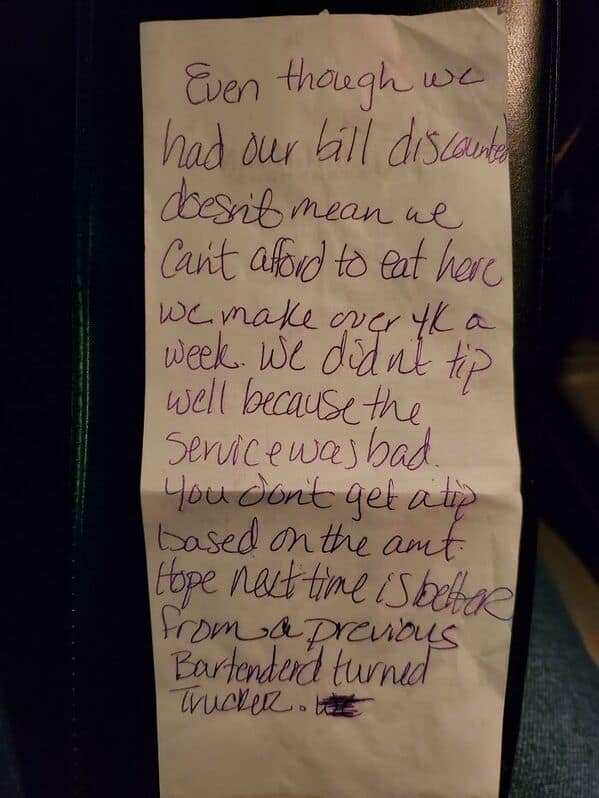 Even though we
had our bill discounted
doesn't mean we
Can't afford to eat here
we make over 4K a
week. We didn't tip
well because the
Service was bad.
You don't get a tip
based on the amt.
Hope next time is better
from a previous
Bartenderd turned
Trucker.